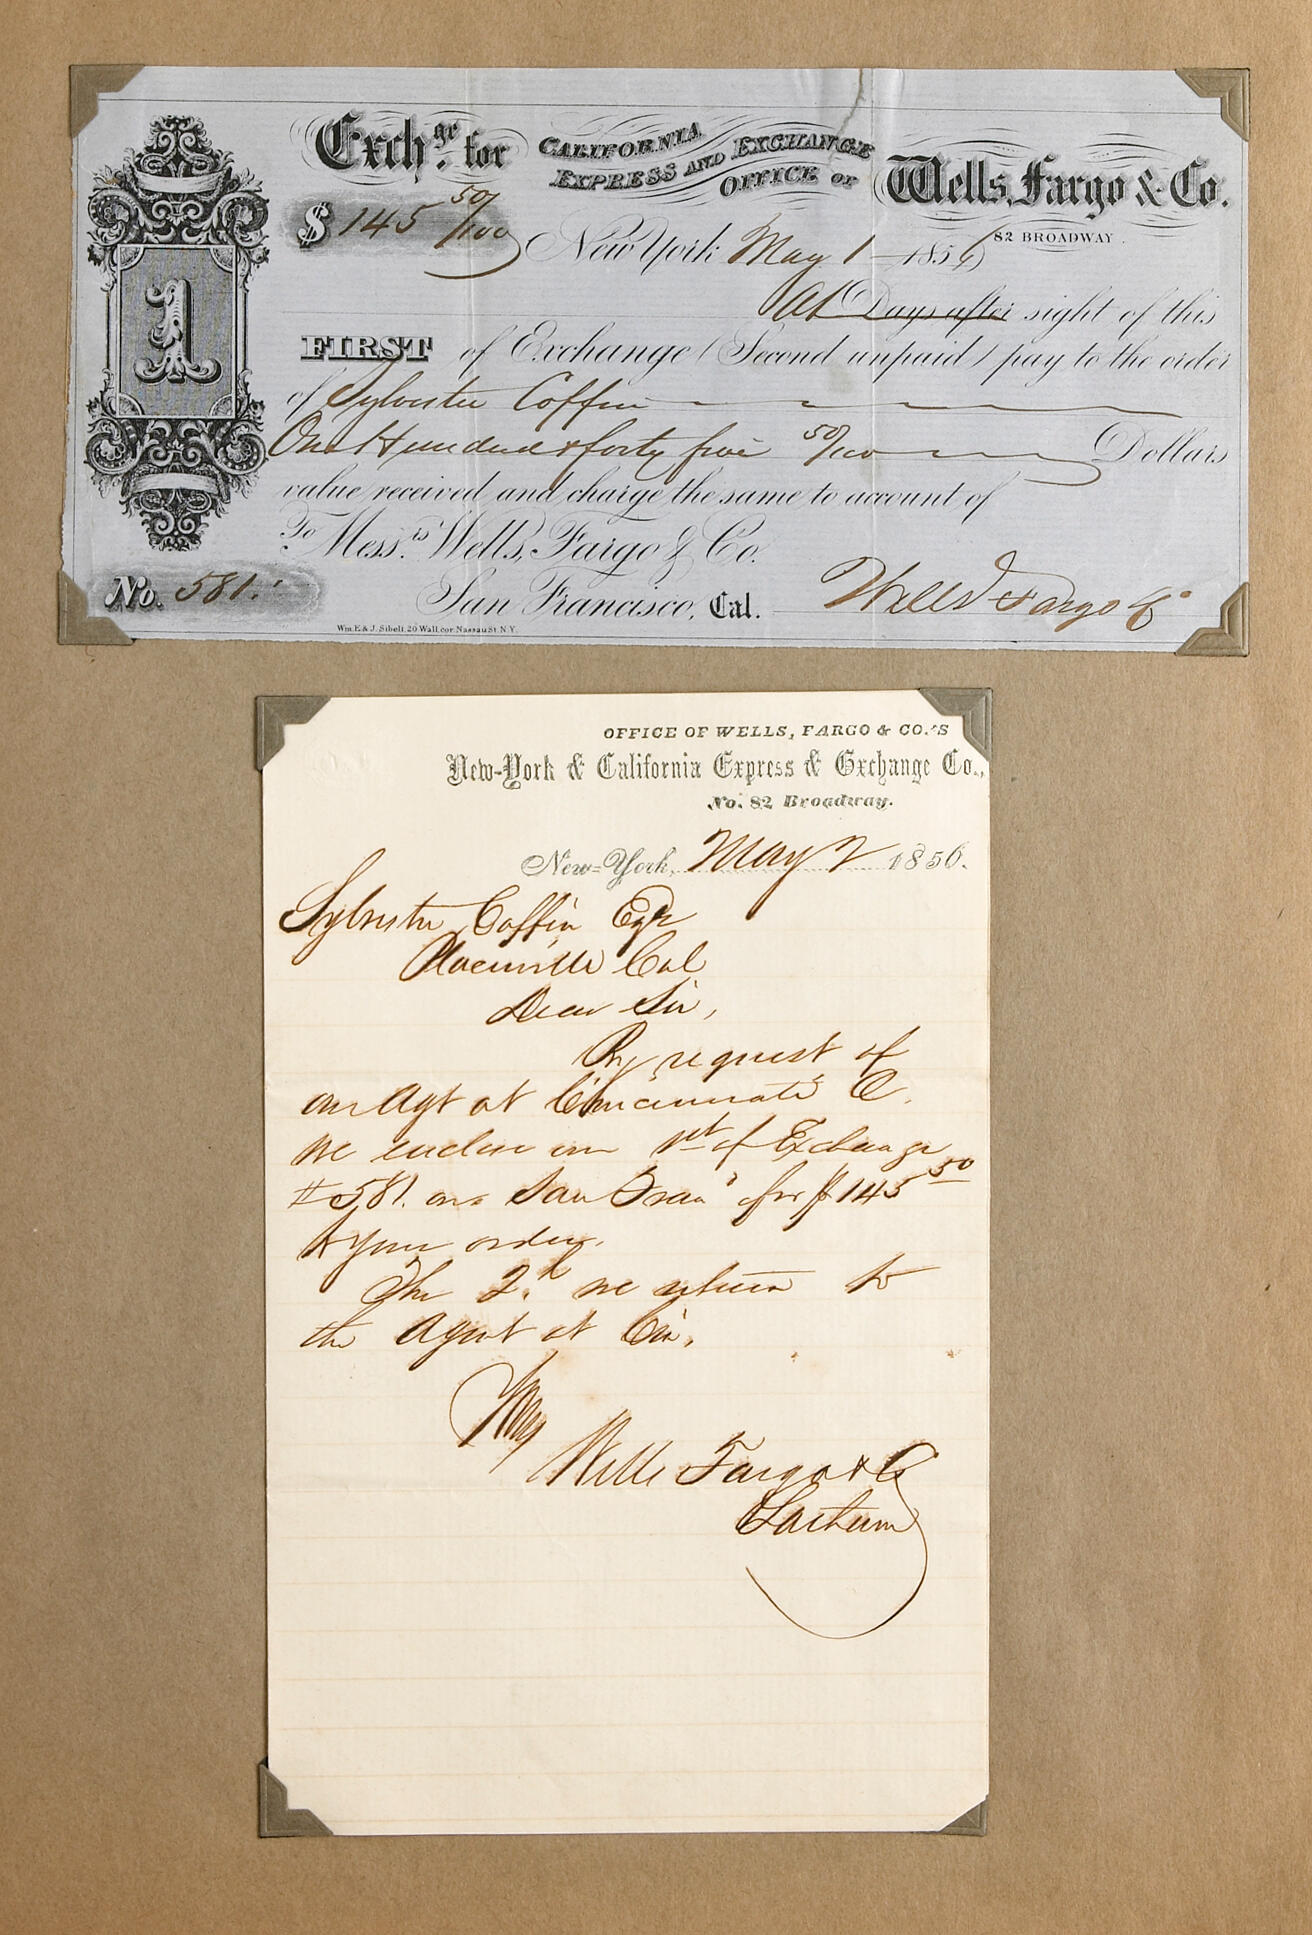 Exchge. for CALIFORNIA EXPRESS AND EXCHANGE OFFICE OF Wells, Fargo & Co.
82 BROADWAY.
$ 145 50/100
New York May 1 1856
At Days after sight of this
1
FIRST of Exchange (Second unpaid) pay to the order
of Sylvester Coffin
One Hundred & forty five 50/100 Dollars
value received and charge the same to account of
To Messrs. Wells, Fargo & Co.
San Francisco, Cal.
Wells Fargo & Co
No. 581.
Wm. E. & J. Sibell, 20 Wall, cor. Nassau St. N.Y.
OFFICE OF WELLS, FARGO & CO.'S
New-York & California Express & Exchange Co.,
No. 82 Broadway.
New-York, May 2 1856.
Sylvester Coffin Esqr
Placerville Cal
Dear Sir,
By request of
our Agt at Cincinnati O.
we enclose our 1st of Exchange
# 581. on San Fran for $ 145 50
to your order.
The 2d we return to
the Agent at Cin.
Wells Fargo & Co